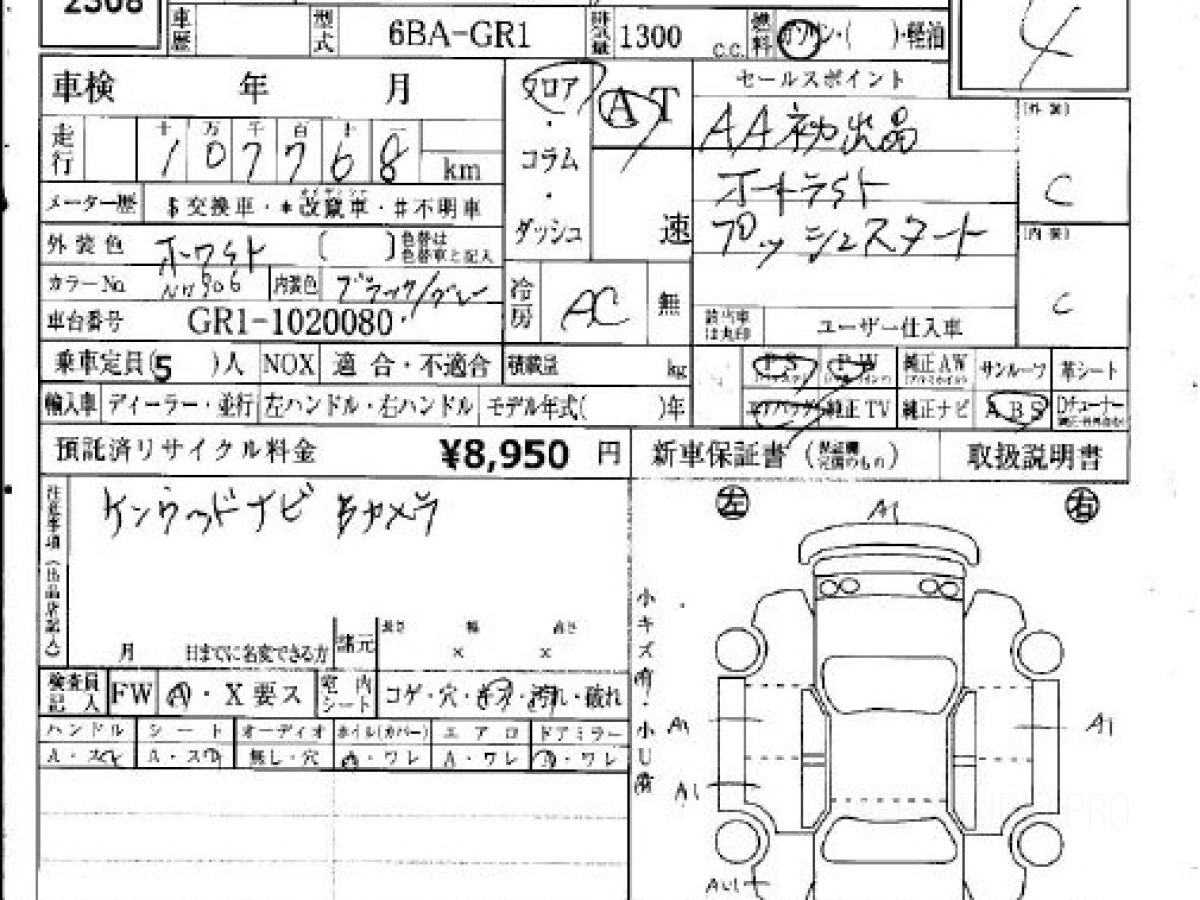 2308
車歴 型式 6BA-GR1 排気量 1300 c.c. 燃料 ガソリン・( )・軽油
4
車検 年 月 フロア AT セールスポイント
AA初出品
(外装)
C
走行 十 万 千 百 十 一
1 0 7 7 6 8 km
・コラム・
オートライト
メーター歴 $交換車・*改竄車・#不明車
ダッシュ 速
プッシュスタート
(内装)
C
外装色 ホワイト ( ) 色替は色替車と記入
カラーNo. NH906 内装色 ブラック/グレー
冷房 AC 無
車台番号 GR1-1020080
該当車は丸印 ユーザー仕入車
乗車定員(5 )人 NOX 適合・不適合 積載量 kg
PS PW 純正AW サンルーフ 革シート
輸入車 ディーラー・並行 左ハンドル・右ハンドル モデル年式( )年
エアバッグ 純正TV 純正ナビ ABS Dチューナー
預託済リサイクル料金 ¥8,950 円 新車保証書 (保証欄完備のもの) 取扱説明書
注意事項(出品店記入)
ケンウッドナビ Bカメラ
左 A1 右
月 日までに名変できる方 諸元 長さ 幅 高さ
× ×
小キズ有・小U有
検査員記入 FW A・X要ス 室内シート コゲ・穴・キズ・汚れ・破れ
ハンドル シート オーディオ ホイル(カバー) エアロ ドアミラー
A・スレ A・スレ 無し・穴 A・ワレ A・ワレ A・ワレ
A1 A1
A1
AU1